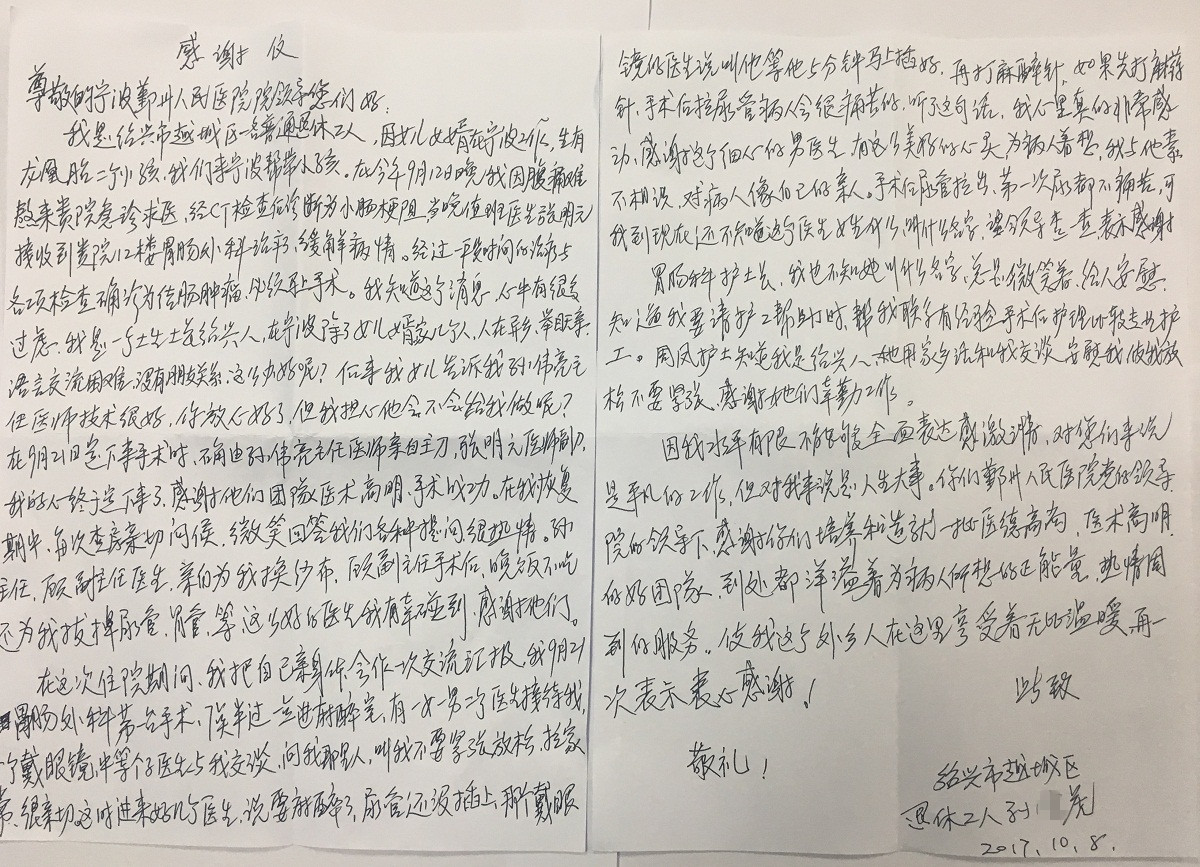 感谢仪
尊敬的宁波鄞州人民医院院领导您们好：
我是绍兴市越城区一名普通退休工人，因女儿女婿在宁波工作，生有
龙凤胎二个小孩，我们来宁波帮带小孩。在今年9月12日晚，我因腹痛难
熬来贵院急诊求医，经CT检查后诊断为小肠梗阻，当晚值班医生张明元
接收到贵院12楼胃肠外科治疗，缓解病情。经过一段时间的治疗与
各项检查确诊为结肠肿瘤，必须马上手术。我知道这个消息，心中有很多
过虑，我是一个土生土长绍兴人，在宁波除了女儿女婿家几个人，人在异乡，举目无亲，
语言交流困难，没有朋友关系，这么办好呢？后来我女儿告诉我孙伟亮主
任医师技术很好，你放心好了，但我担心他会不会给我做呢？
在9月21日定下来手术时，确由孙伟亮主任医师亲自主刀，张明元医师副刀，
我的心终于定下来了，感谢他们团队医术高明，手术成功。在我恢复
期中，每次查房亲切问候，微笑回答我们各种提问，很热情。孙
主任，顾副主任医生，亲自为我换纱布，顾副主任手术后，晚饭不吃
还为我拔掉尿管，胃管，等，这么好的医生我有幸碰到，感谢他们。
在这次住院期间，我把自己亲身体会作一次交流汇报，我9月21
胃肠外科第一台手术，8点半过一些进麻醉室，有一女一男二个医生接待我，
个戴眼镜，中等个子医生与我交谈，问我那里人，叫我不要紧张放松，拉家
常，很亲切，这时进来好几个医生，说要麻醉了，尿管还没插上，那个戴眼
镜的医生说叫他等他5分钟马上插好，再打麻醉针，如果先打麻醉
针，手术后拉尿管病人会很痛苦的，听了这句话，我心里真的非常感
动，感谢这个细心的男医生，有这么美好的心灵，为病人着想，我与他素
不相识，对病人像自己的亲人。手术后尿管拉出，第一次尿都不痛苦，可
我到现在还不知道这个医生姓什么，叫什么名字，望领导查一查表示感谢
胃肠科护士长，我也不知她叫什么名字，总是微笑着，给人安慰，
知道我要请护工帮助时，帮我联系有经验手术后护理比较专业护
工。周凤护士知道我是绍兴人，她用家乡话和我交谈，安慰我，使我放
松不要紧张，感谢她们辛勤工作。
因我水平有限不能够全面表达感激之情，对您们来说
是平凡的工作，但对我来说是人生大事。你们鄞州人民医院党的领导，
院的领导下，感谢你们培养和造就一批医德高尚，医术高明
的好团队，到处都洋溢着为病人所想的正能量，热情周
到的服务。使我这个外乡人在这里享受着无比温暖，再一
次表示衷心感谢！
此致
敬礼！
绍兴市越城区
退休工人孙 茂
2017.10.8.